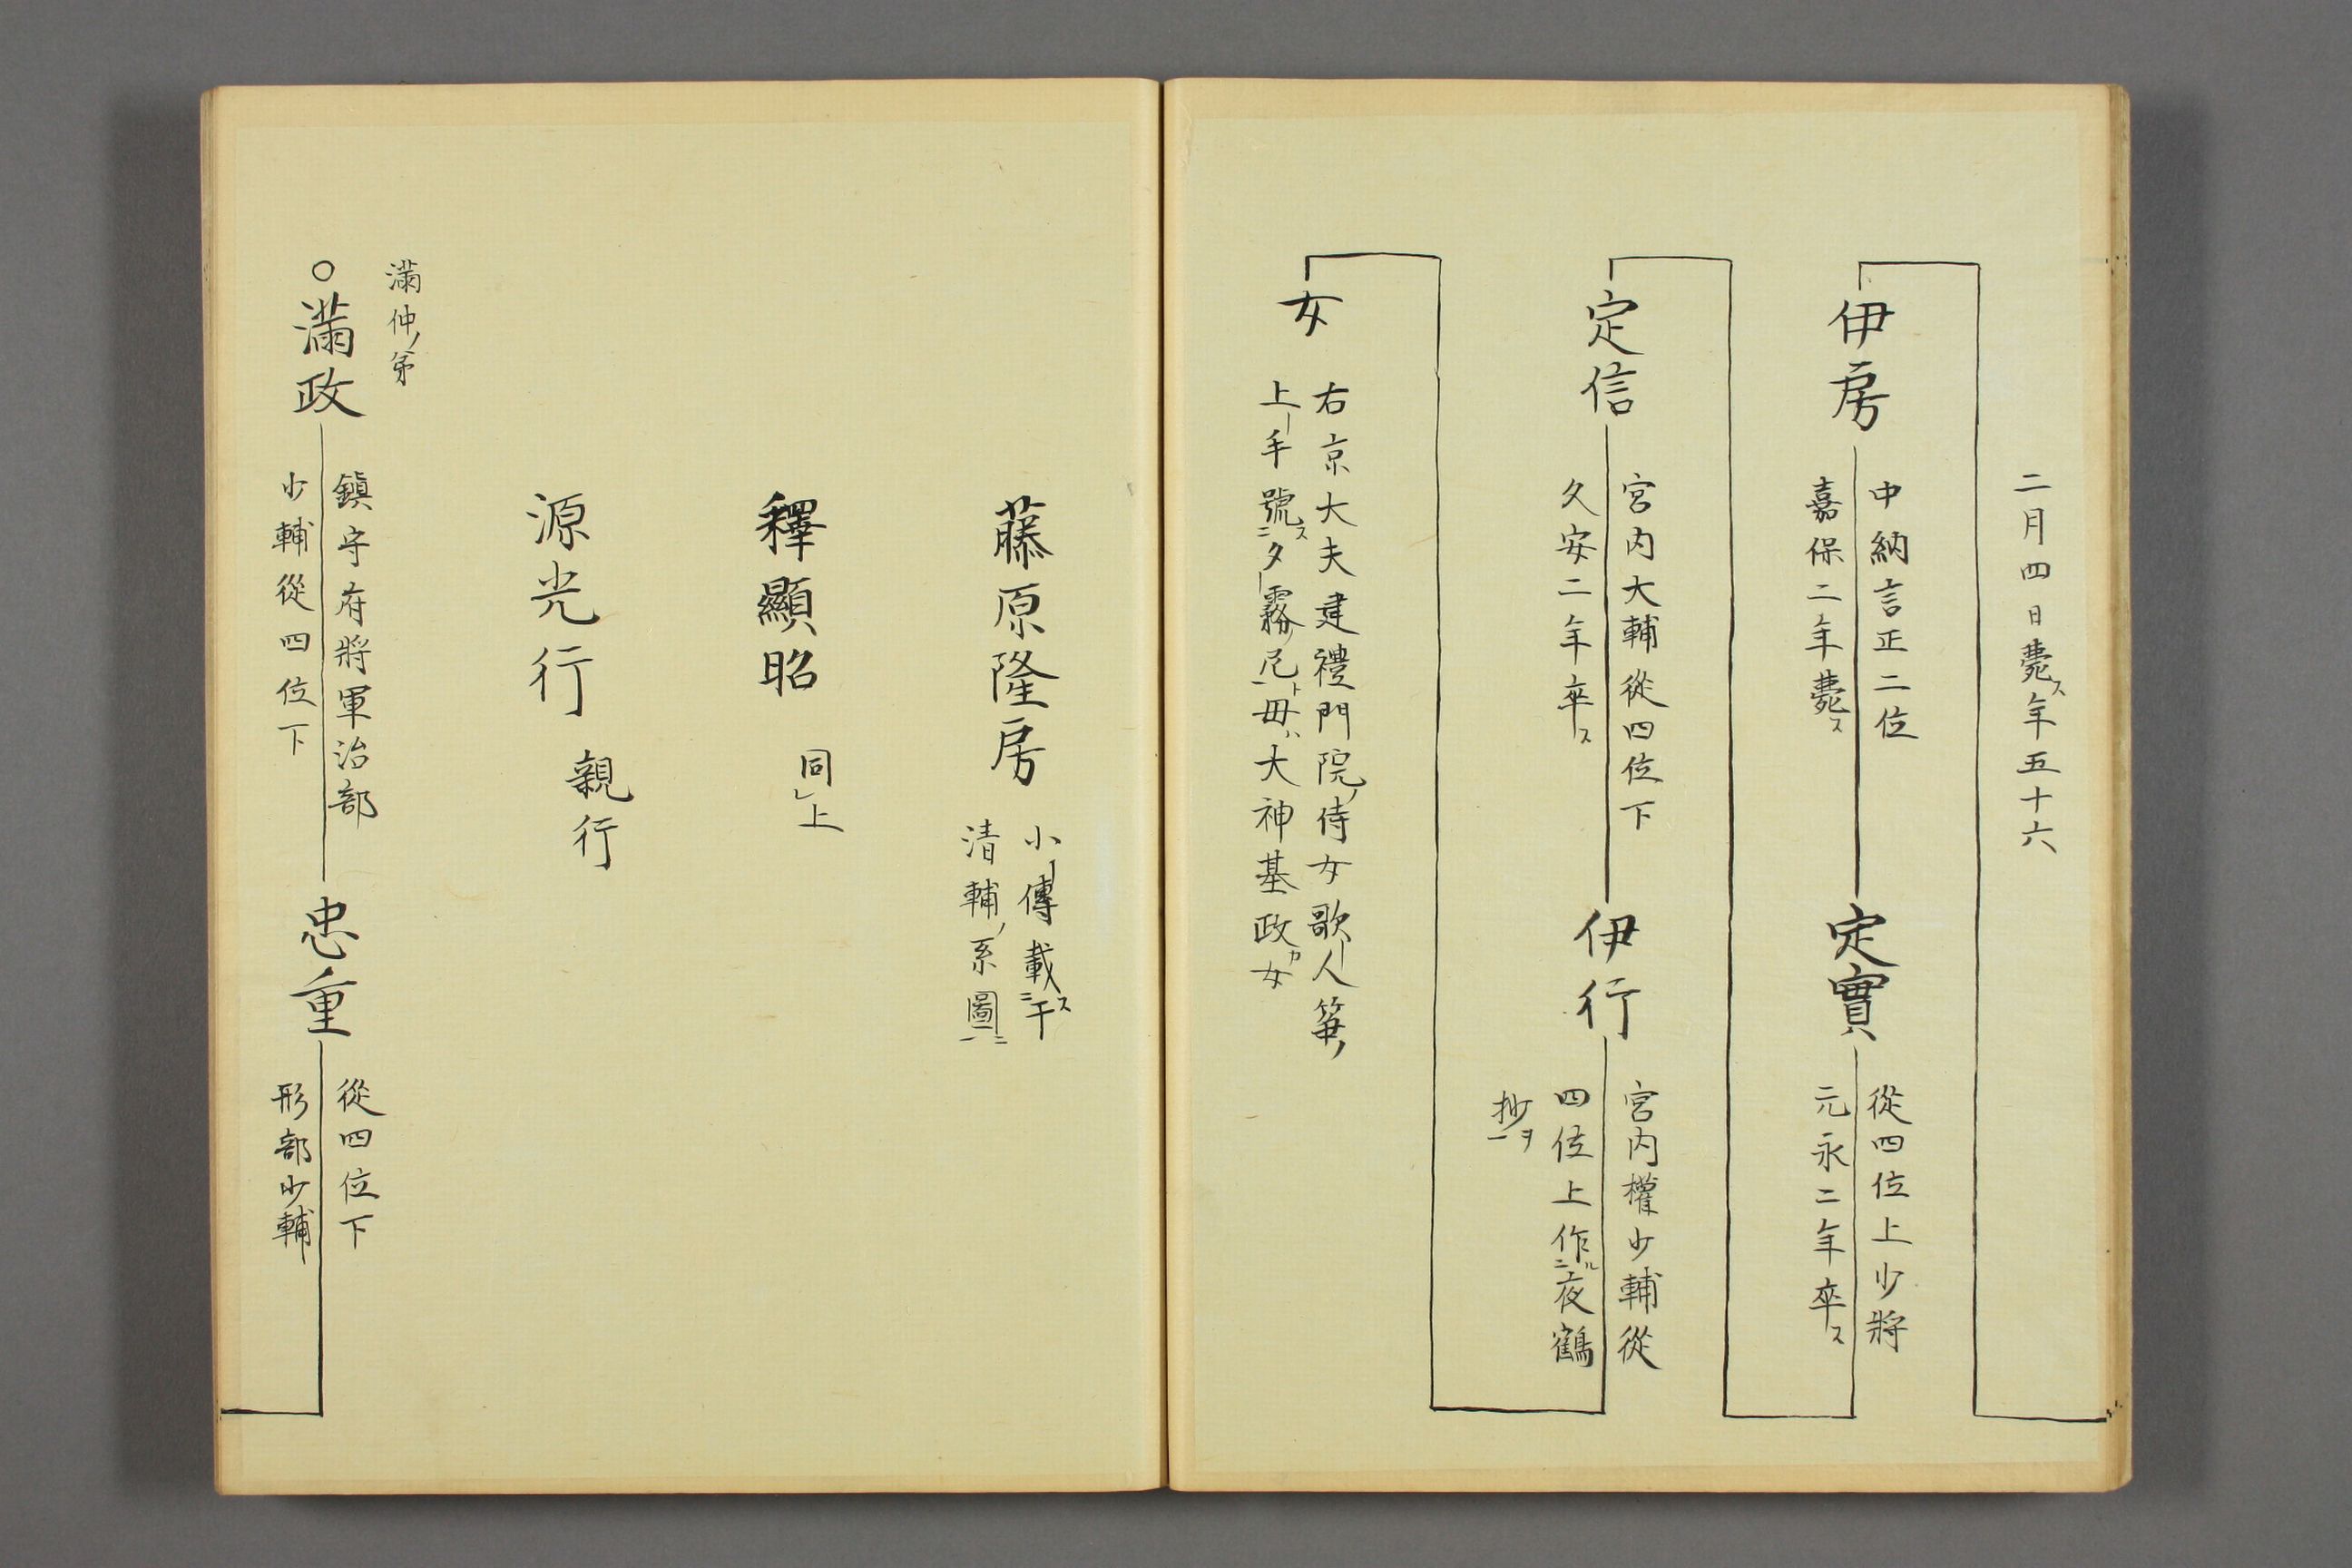 二月四日薨ス年五十六
伊房
中納言正二位
嘉保二年薨ス
定實
從四位上少將
元永二年卒ス
定信
宮内大輔從四位下
久安二年卒ス
伊行
宮内權少輔從
四位上作ル二夜鶴
抄一ヲ
女
右京大夫建禮門院ノ侍女歌人箏ノ
上手號ス二夕霧ノ尼一ト母ハ大神基政カ女
藤原隆房
小傳載ス三于
清輔ノ系圖一ニ
釋顯昭
同レ上
源光行
親行
滿仲ノ弟
○滿政
鎭守府將軍治部
少輔從四位下
忠重
從四位下
形部少輔